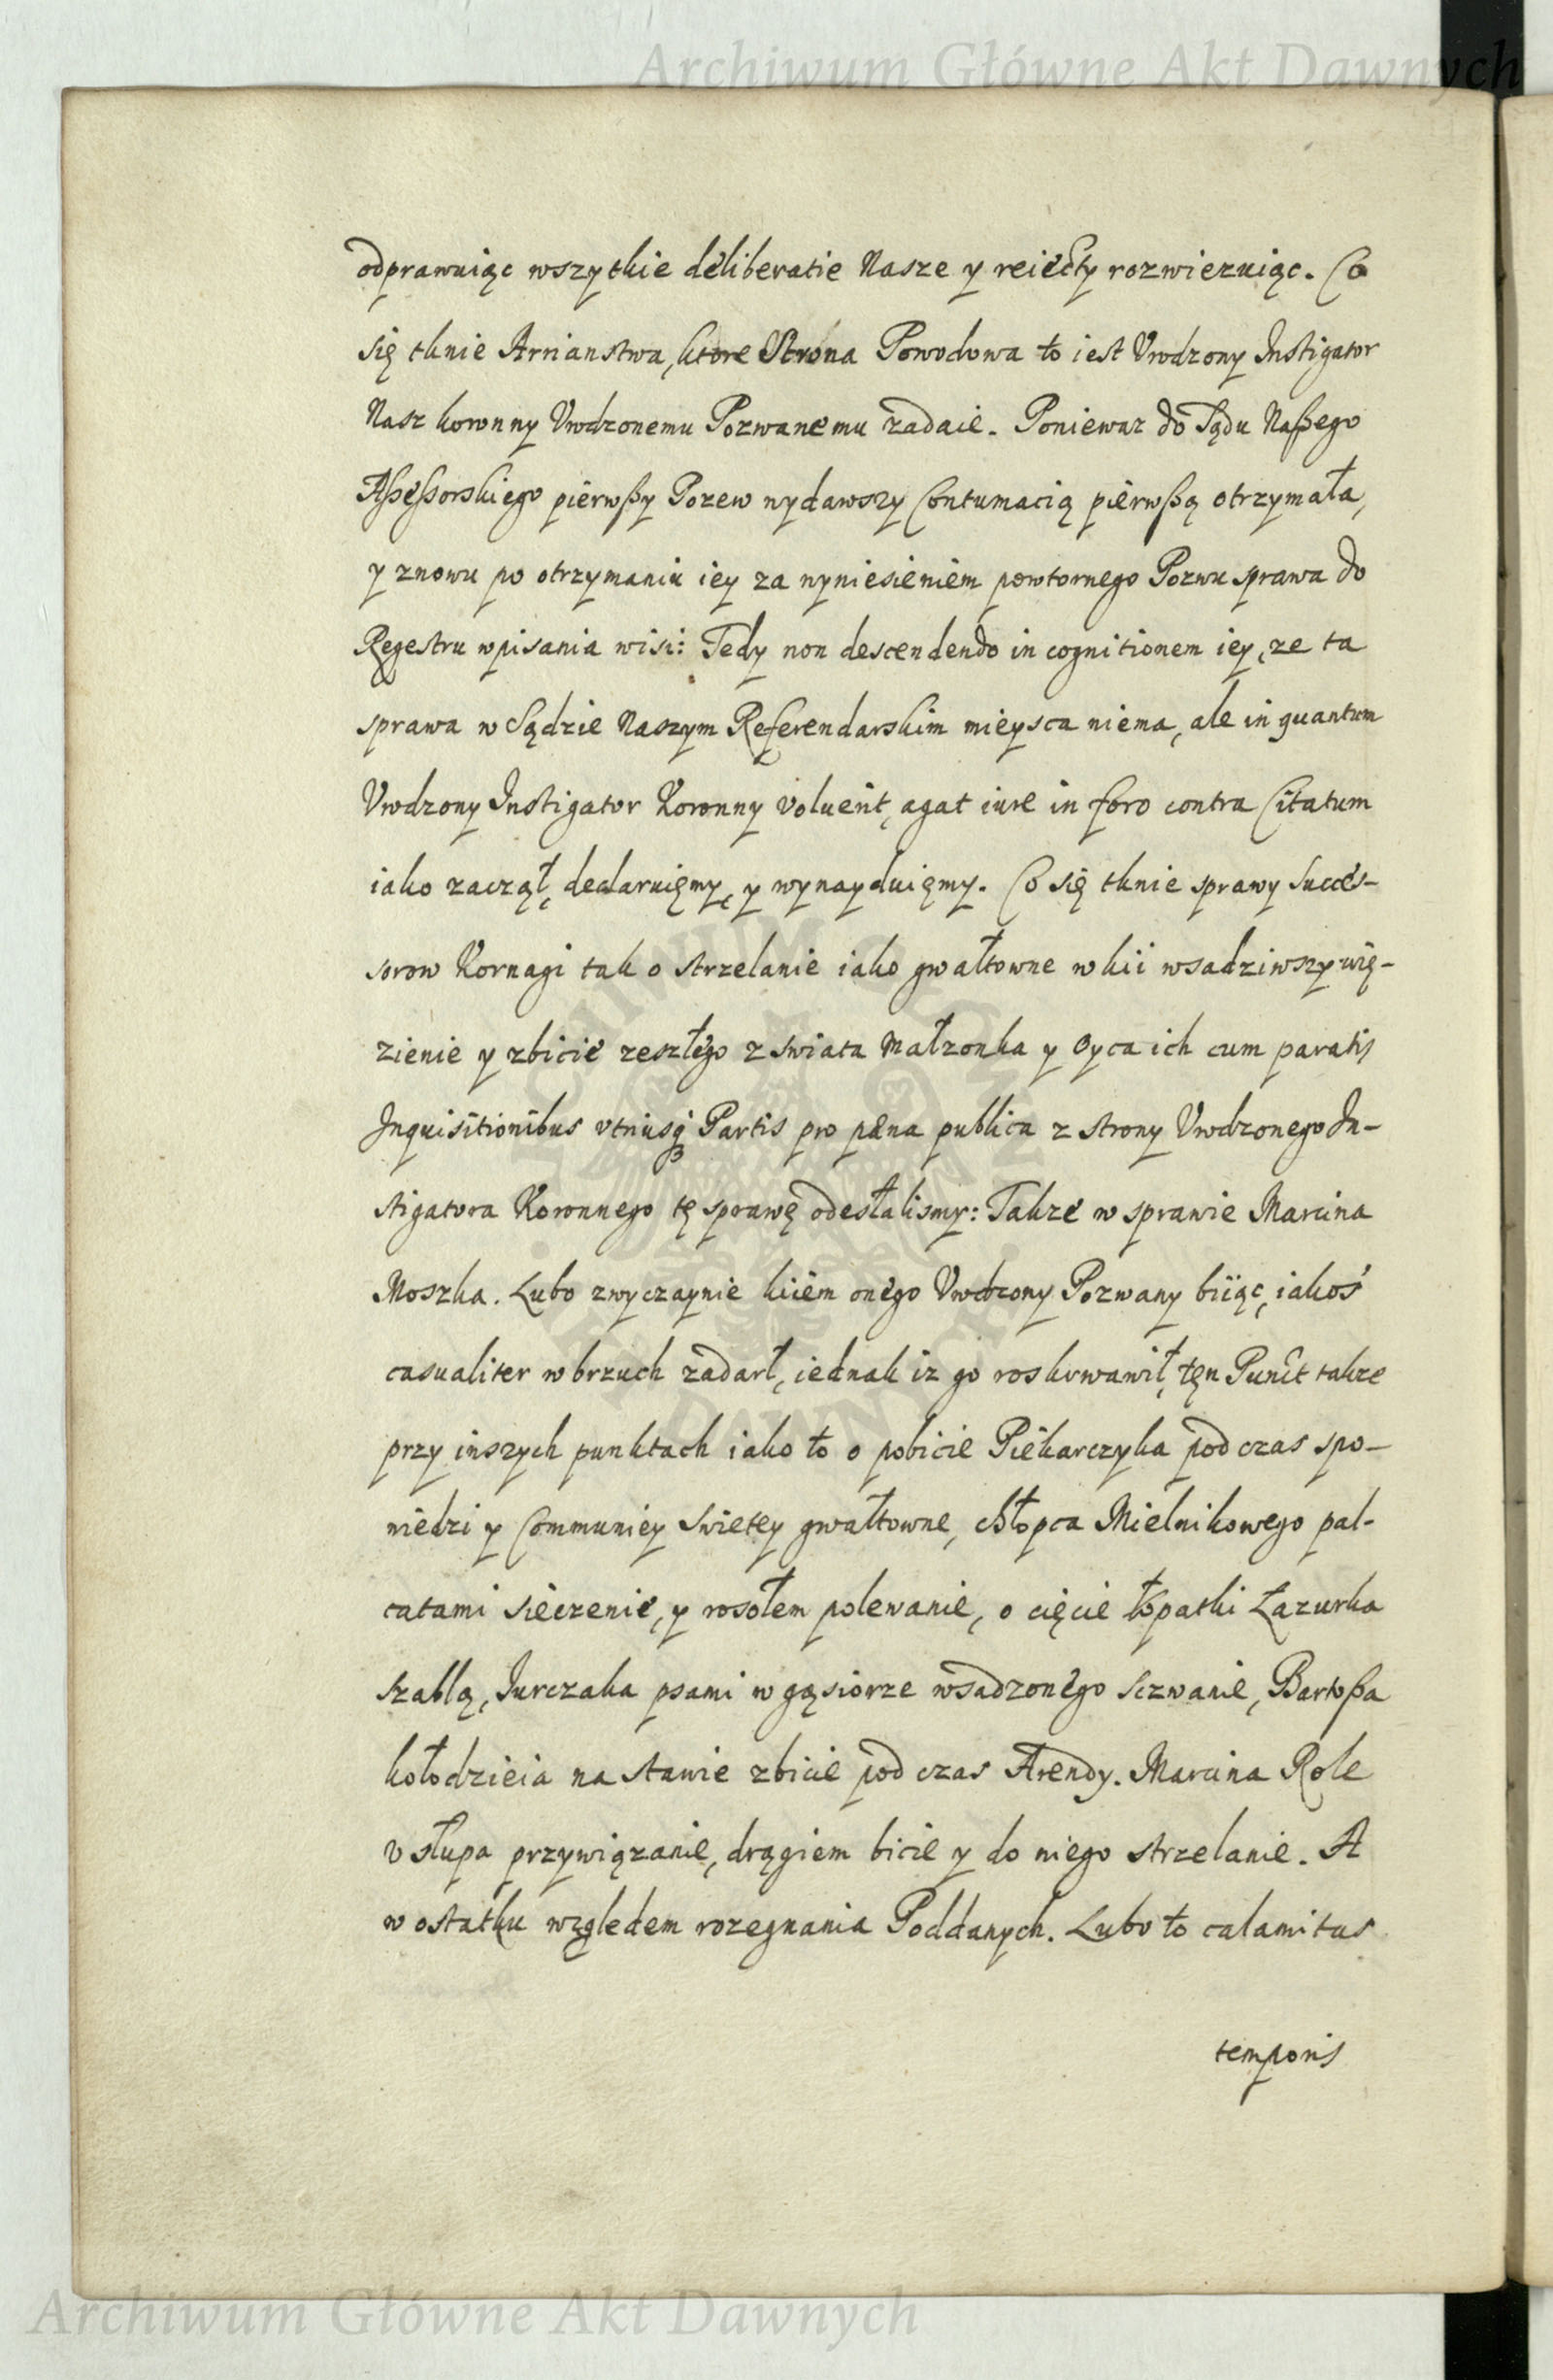 Archiwum Główne Akt Dawnych
odprawuiąc wszytkie deliberatie Nasze y reiecty rozwiezuiąc. Co
się tknie Arrianstwa, ktore Strona Powodowa to iest Vrodzony Instigator
Nasz koronny Vrodzonemu Pozwanemu zadaie. Poniewaz do Sądu Naßego
Aßeßorskiego pierwßy Pozew wydawszy Contumacią pierwßą otrzymała,
y znowu po otrzymaniu iey za wyniesieniem powtornego Pozwu sprawa do
Regestru wpisania wisi: Tedy non descendendo in cognitionem iey, ze ta
sprawa w Sądzie Naszym Referendarskim mieysca niema, ale in quantum
Vrodzony Instigator Koronny voluerit, agat iure in foro contra Citatum
iako zaczął, declaruięmy, y wynayduięmy. Co się tknie sprawy Succes-
sorow Kornagi tak o strzelanie iako gwałtowne w kii wsadziwszy wię-
zienie y zbicie zeszłego z swiata Małzonka y Oyca ich cum paratis
Inquisitionibus vtriusq3 Partis pro pæna publica z strony Vrodzonego In-
stigatora Koronnego tę sprawę odesłalismy: Takze w sprawie Marcina
Moszka. Lubo zwyczaynie kiiem onego Vrodzony Pozwany biiąc, iakoś
casualiter w brzuch zadarł, iednak iz go roskrwawił, tęn Punct takze
przy inszych punktach iako to o pobicie Piekarczyka pod czas spo-
wiedzi y Communiey Swietey gwałtowne, chłopca Mielnikowego pal-
catami sieczenie, y rosołem polewanie, o cięcie łopatki Łazurka
szablą, Jurczaka psami w gąsiorze wsadzonego sczwanie, Bartoßa
kołodzieia na stawie zbicie pod czas Arendy. Marcina Role
v słupa przywiązanie, drągiem bicie y do niego strzelanie. A
w ostatku względem rozegnania Poddanych. Lubo to calamitas
temporis
Archiwum Główne Akt Dawnych